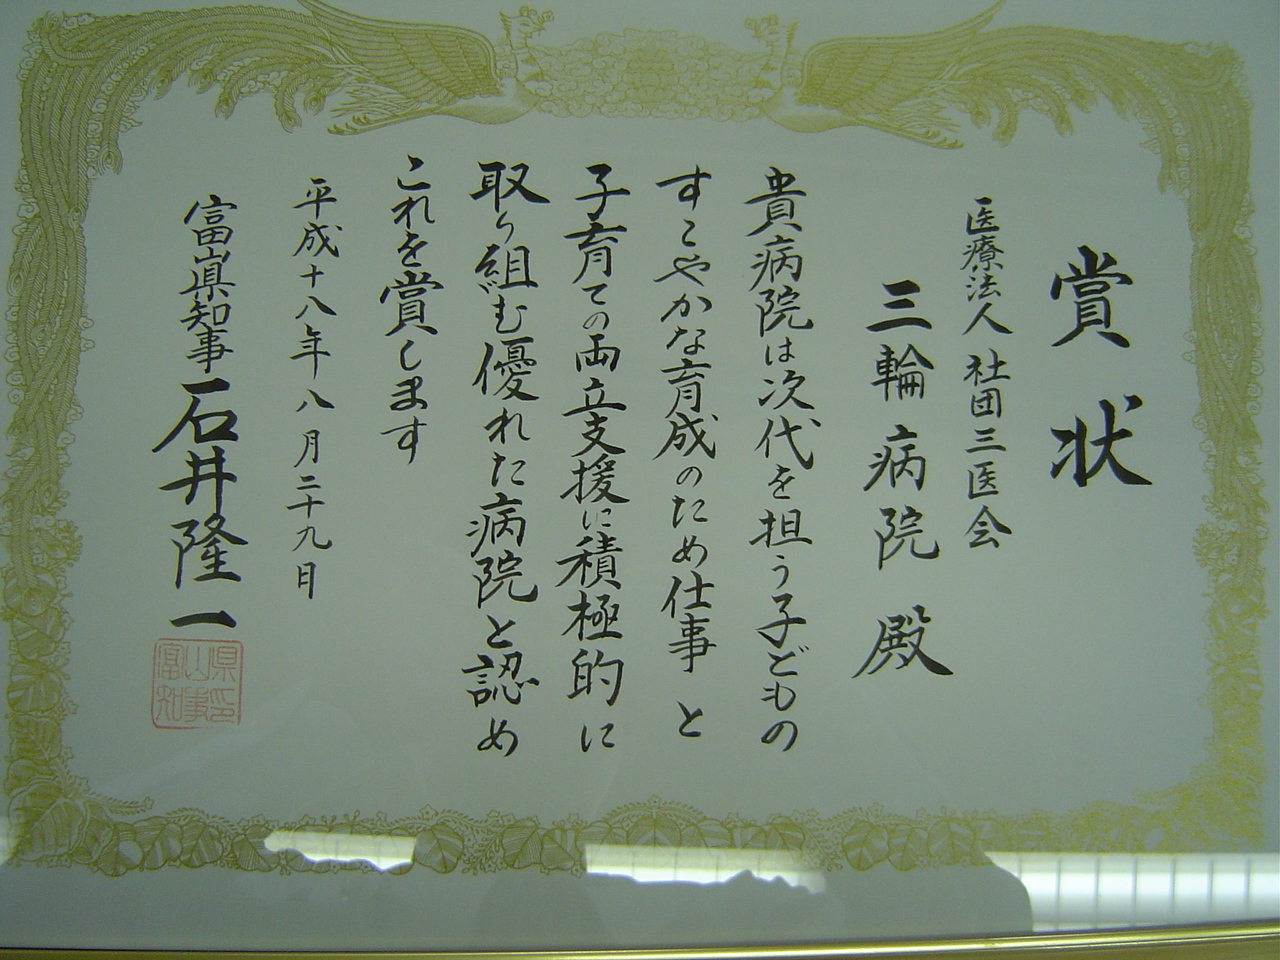 賞状
医療法人社団三医会
三輪病院殿
貴病院は次代を担う子どもの
すこやかな育成のため仕事と
子育ての両立支援に積極的に
取り組む優れた病院と認め
これを賞します
平成十八年八月二十九日
富山県知事石井隆一
富山県知事印